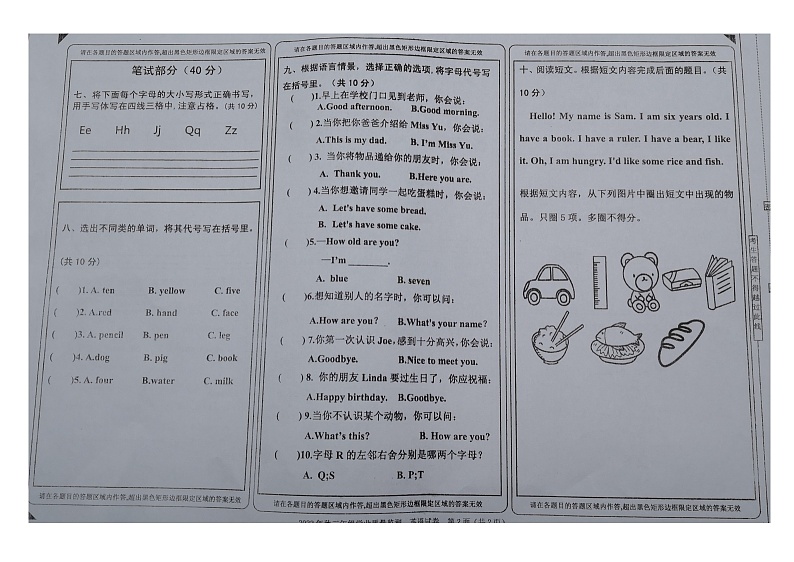 请在各题目的答题区域内作答,超出黑色矩形边框限定区域的答案无效
笔试部分（40 分）
七、将下面每个字母的大小写形式正确书写，
用手写体写在四线三格中.注意占格。(共 10 分)
Ee Hh Jj Qq Zz
八、选出不同类的单词，将其代号写在括号里。
(共 10 分)
( )1. A. ten B. yellow C. five
( )2. A.red B. hand C. face
( )3. A. pencil B. pen C. leg
( )4. A.dog B. pig C. book
( )5. A. four B.water C. milk
请在各题目的答题区域内作答,超出黑色矩形边框限定区域的答案无效
请在各题目的答题区域内作答,超出黑色矩形边框限定区域的答案无效
九、根据语言情景，选择正确的选项,将字母代号写
在括号里。（共 10 分）
( )1.早上在学校门口见到老师，你会说：
A.Good afternoon. B.Good morning.
( ) 2.当你把你爸爸介绍给 Miss Yu，你会说：
A.This is my dad. B. I'm Miss Yu.
( ) 3. 当你将物品递给你的朋友时，你会说：
A. Thank you. B.Here you are.
( ) 4.当你想邀请同学一起吃蛋糕时，你会说：
A. Let's have some bread.
B. Let's have some cake.
( )5.—How old are you?
—I'm ________.
A. blue B. seven
( )6.想知道别人的名字时，你可以问：
A.How are you？ B.What's your name?
( ) 7.你第一次认识 Joe,感到十分高兴,你会说：
A.Goodbye. B.Nice to meet you.
( ) 8. 你的朋友 Linda 要过生日了，你应祝福：
A.Happy birthday. B.Goodbye.
( ) 9.当你不认识某个动物，你可以问：
A.What's this? B. How are you?
( )10.字母 R 的左邻右舍分别是哪两个字母？
A. Q;S B. P;T
请在各题目的答题区域内作答,超出黑色矩形边框限定区域的答案无效
英语试卷 第 2 页（共 2 页）
请在各题目的答题区域内作答,超出黑色矩形边框限定区域的答案无效
十、阅读短文。根据短文内容完成后面的题目。（共
10 分）
Hello! My name is Sam. I am six years old. I
have a book. I have a ruler. I have a bear, I like
it. Oh, I am hungry. I'd like some rice and fish.
根据短文内容，从下列图片中圈出短文中出现的物
品。只圈 5 项。多圈不得分。
请在各题目的答题区域内作答,超出黑色矩形边框限定区域的答案无效
考生答题不得越过此线